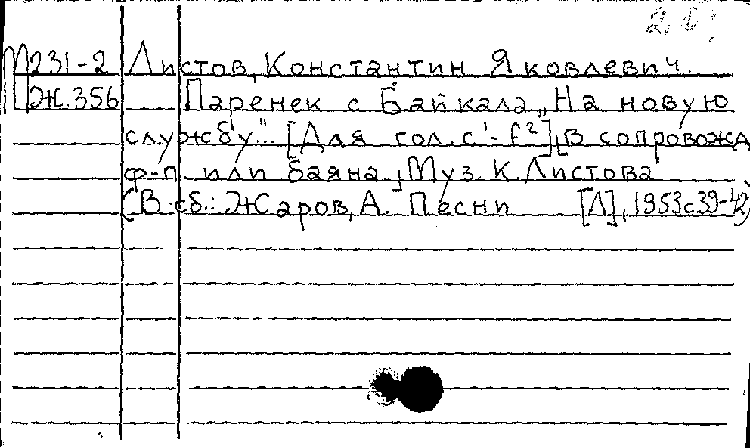 М231-2 Листов, Константин Яковлевич.
Ж.356 Паренек с Байкала „На новую
службу" [Для гол. с¹-f²], в сопровожд
ф-п. или баяна, Муз. К. Листова
(В сб.: Жаров, А. Песни [Л], 1953 с 39-42)